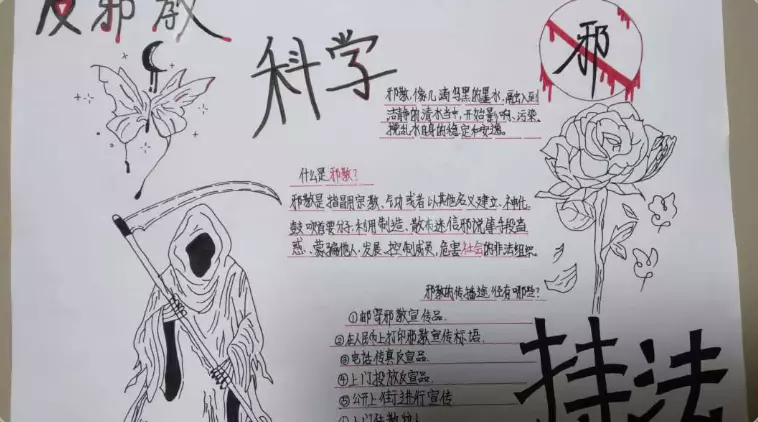 反邪教
科学
邪
邪教,像几滴乌黑的墨水,融入到
洁静的清水当中,开始影响、污染、
搅乱水自身的稳定和安逸。
什么是邪教?
邪教是指冒用宗教、气功或者以其他名义建立、神化、
鼓吹首要分子,利用制造、散布迷信邪说等手段蛊
惑、蒙骗他人,发展、控制成员,危害社会的非法组织。
邪教的传播途径有哪些?
①邮寄邪教宣传品
②在人民币上打印邪教宣传标语
③电话传真反宣品
④上门投放反宣品
⑤公开上街进行宣传
持法